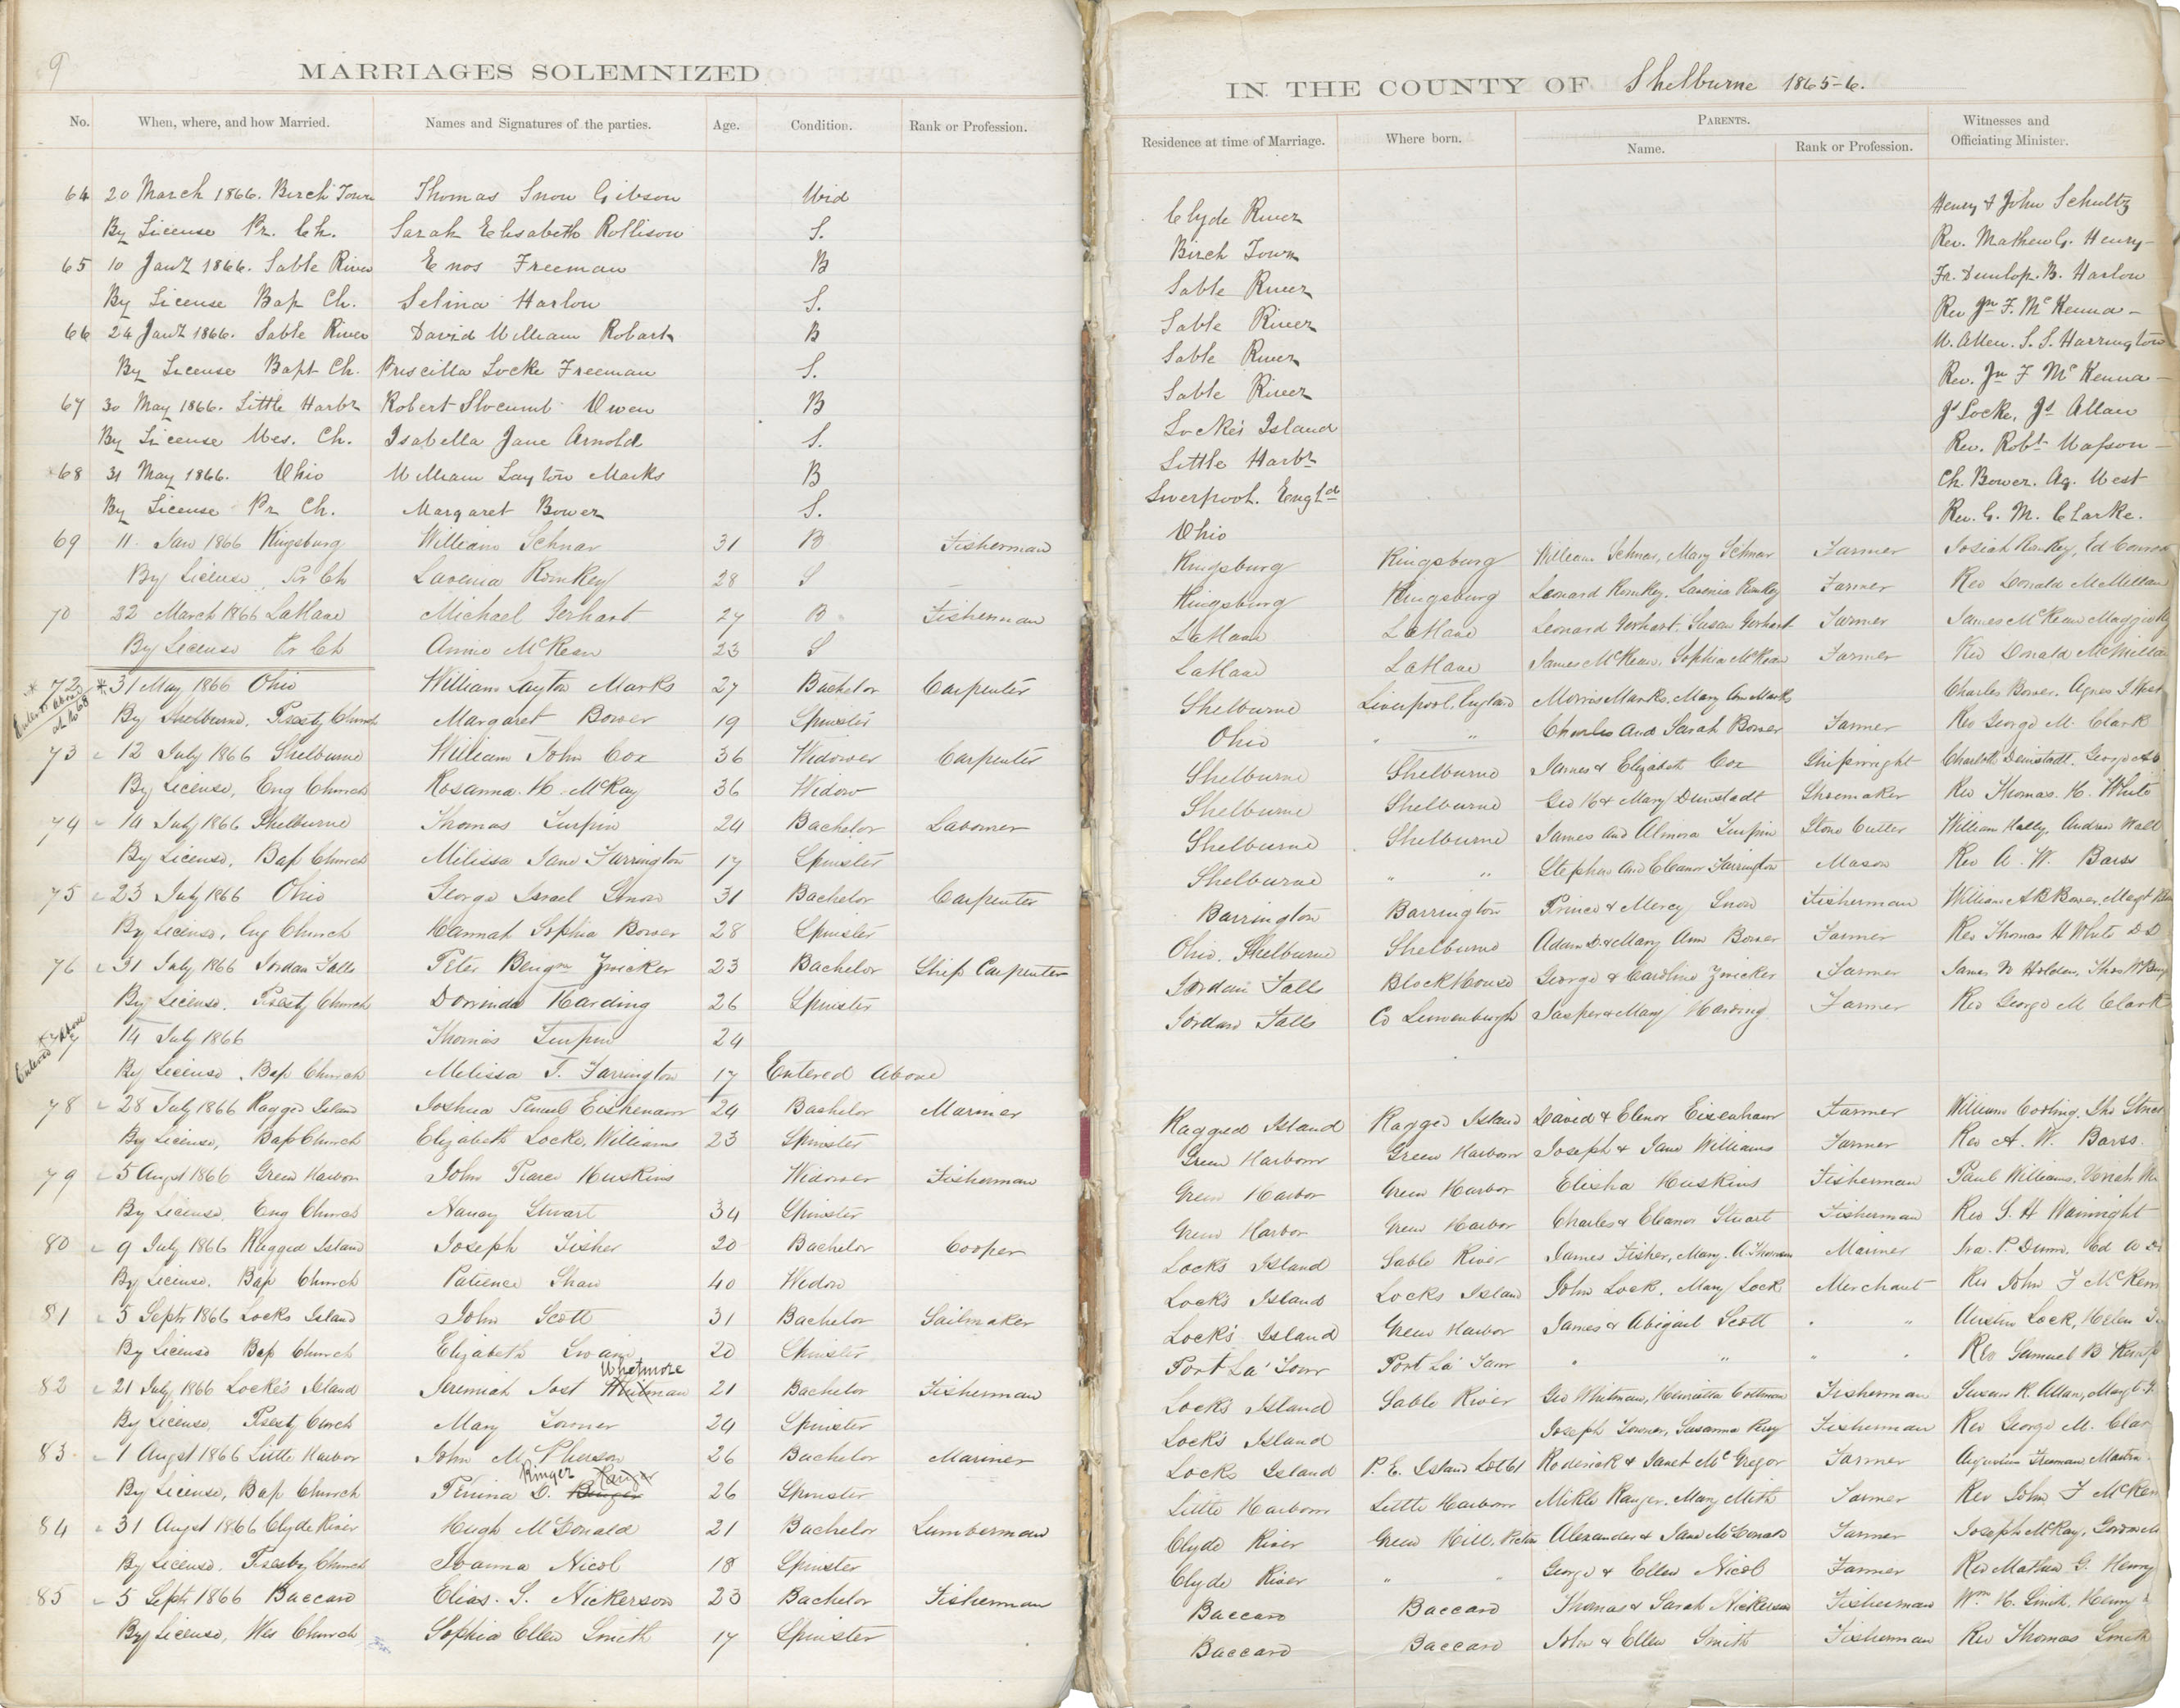 9
MARRIAGES SOLEMNIZED
IN THE COUNTY OF Shelburne 1865-6.
No. When, where, and how Married. Names and Signatures of the parties. Age. Condition. Rank or Profession. Residence at time of Marriage. Where born. PARENTS. Name. Rank or Profession. Witnesses and Officiating Minister.
64 20 March 1866. Birch Town Thomas Snow Gibson Wid Clyde River Henry & John Schultz
By License Pr. Ch. Sarah Elisabeth Rollison S. Birch Town Rev. Mathew G. Henry
65 10 Jany 1866. Sable River Enos Freeman B Sable River Fr. Dunlop. B. Harlow
By License Bap Ch. Selina Harlow S. Sable River Rev Jno F. McKenna
66 24 Jany 1866. Sable River David William Robart B Sable River W. Allen. S. S. Harrington
By License Bapt Ch. Priscilla Locke Freeman S. Sable River Rev. Jno F McKenna
67 30 May 1866. Little Harbr Robert Slocumb Owen B Locke's Island Js Locke, Js Allan
By License Wes. Ch. Isabella Jane Arnold S. Little Harbr Rev. Robt Wasson
68 31 May 1866. Ohio William Layton Marks B Liverpool. Engld Ch. Bower. Ag. West
By License Pr Ch. Margaret Bower S. Ohio Rev. G. M. Clarke.
69 11 Jan 1866 Kingsburg William Schnar 31 B Fisherman Kingsburg Kingsburg William Schnar, Mary Schnar Farmer Josiah Romkey, Ed Conrod
By License Pr Ch Lavenia Romkey 28 S Kingsburg Kingsburg Leonard Romkey. Lavenia Romkey Farmer Rev Donald McMillan
70 22 March 1866 LaHave Michael Gerhart 27 B Fisherman LaHave LaHave Leonard Gerhart. Susan Gerhart Farmer James McKean
By License Pr Ch Annie McKean 23 S LaHave LaHave James McKean, Sophia McKean Farmer Rev Donald McMillan
* 72 * 31 May 1866 Ohio William Layton Marks 27 Bachelor Carpenter Shelburne Liverpool, England Morris Marks. Mary Ann Marks Charles Bower. Agnes J West
Entered above at No 68
By Shelburne, Presty Church Margaret Bower 19 Spinster Ohio " " Charles and Sarah Bower Farmer Rev George M. Clark
73 12 July 1866 Shelburne William John Cox 36 Widower Carpenter Shelburne Shelburne James & Elizabeth Cox Shipwright
By License, Eng Church Rosanna. H. McKay 36 Widow Shelburne Shelburne Geo H & Mary Demstadt Shoemaker Rev Thomas. H. White
74 14 July 1866 Shelburne Thomas Turpin 24 Bachelor Laborer Shelburne Shelburne James and Almira Turpin Stone Cutter William Holly, Andrew Wall
By License, Bap Church Milissa Jane Farrington 17 Spinster Shelburne " " Stephen and Eleanor Farrington Mason Rev A. W. Barss
75 23 July 1866 Ohio George Israel Snow 31 Bachelor Carpenter Barrington Barrington Prince & Mercy Snow Fisherman William A B Bower.
By License, Eng Church Hannah Sophia Bower 28 Spinster Ohio. Shelburne Shelburne Adam D. & Mary Ann Bower Farmer Rev Thomas H White D D
76 31 July 1866 Jordan Falls Peter Benjn Zwicker 23 Bachelor Ship Carpenter Jordan Falls BlockHouse George & Caroline Zwicker Farmer James W Holden,
By License. Presty Church Dorinda Harding 26 Spinster Jordan Falls Co Lunenburgh Jasper & Mary Harding Farmer Rev George M Clark
Entered above
77 14 July 1866 Thomas Turpin 24
By License, Bap Church Melissa J. Farrington 17 Entered Above
78 28 July 1866 Ragged Island Joshua Lemuel Eisehnaur 24 Bachelor Mariner Ragged Island Ragged Island David & Elenor Eisenhaur Farmer
By License, Bap Church Elizabeth Locke Williams 23 Spinster Green Harbour Green Harbour Joseph & Jane Williams Farmer Rev A. W. Barss.
79 5 August 1866 Green Harbor John Pearce Huskins Widower Fisherman Green Harbor Green Harbor Elisha Huskins Fisherman Paul Williams.
By License, Eng Church Nancy Stuart 34 Spinster Green Harbor Green Harbor Charles & Eleanor Stuart Fisherman Rev S. H Wainright
80 9 July 1866 Ragged Island Joseph Fisher 20 Bachelor Cooper Lock's Island Sable River James Fisher, Mary. A. Mariner Ira. P. Dunn.
By License. Bap Church Patience Shaw 40 Widow Lock's Island Locks Island John Lock. Mary Lock Merchant Rev John F McKen
81 5 Sept 1866 Locks Island John Scott 31 Bachelor Sailmaker Lock's Island Green Harbor James & Abigail Scott " " Austin Lock, Helen
By License Bap Church Elizabeth Swain 20 Spinster Port La Tour Port La Tour " " " " Rev Samuel B Kempt
82 21 July 1866 Locke's Island Jeremiah Jost Whitman Whetmore 21 Bachelor Fisherman Lock's Island Sable River Geo Whitman, Henrietta Fisherman Susan R. Allan,
By License, Presty Curch Mary Towner 24 Spinster Lock's Island Joseph Towner, Susanna Perry Fisherman Rev George M. Clar
83 1 Augst 1866 Little Harbor John McPherson 26 Bachelor Mariner Locks Island P. E. Island Lot 61 Roderick & Janet McGregor Farmer
By License, Bap Church Penina D. Ringer 26 Spinster Little Harbour Little Harbour Farmer Rev John F McKen
84 31 Augst 1866 Clyde River Hugh McDonald 21 Bachelor Lumberman Clyde River Green Hill, Pictou Alexander & Jane McDonald Farmer Joseph McKay,
By License, Presby Church Joanna Nicol 18 Spinster Clyde River " " George & Ellen Nicol Farmer Rev Mathew G. Henry
85 5 Sept 1866 Baccaro Elias. S. Nickerson 23 Bachelor Fisherman Baccaro Baccaro Thomas & Sarah Nickerson Fisherman Wm H. Smith, Henry
By License, Wes Church Sophia Ellen Smith 17 Spinster Baccaro Baccaro John & Ellen Smith Fisherman Rev Thomas Smith